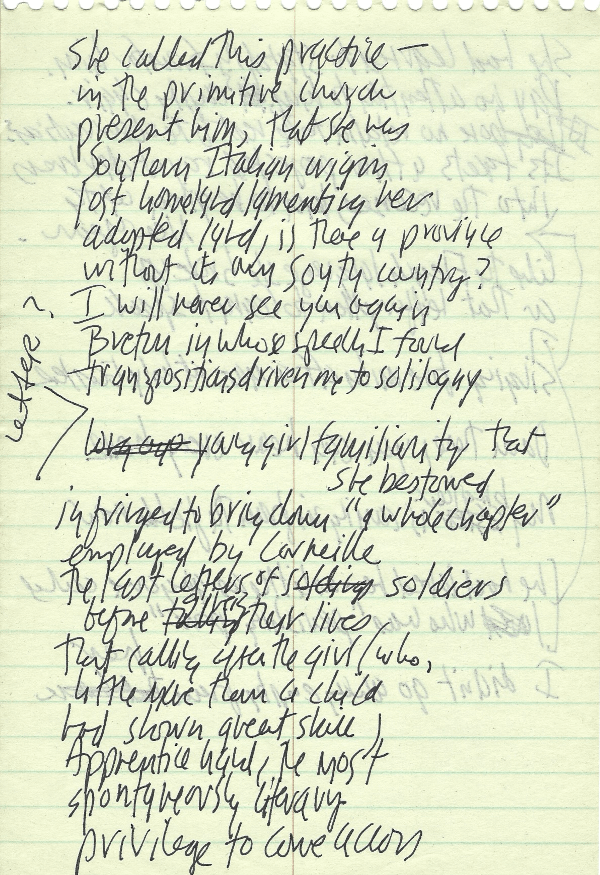 She called this practice —
in the primitive church
present him, that she was
Southern Italian origin
lost homeland lamenting her
adopted land, is there a province
without its own South country?
I will never see you again
Breton in whose speech I found
transpositions driven me to soliloquy
letter?
long ago young girl familiarity that
she bestowed
infringed to bring down "a whole chapter"
employed by Corneille
the last letters of solding soldiers
before their lives,
that calling upon the girl (who,
little more than a child
had shown great skill)
Apprentice hand, the most
spontaneously literary
privilege to come across